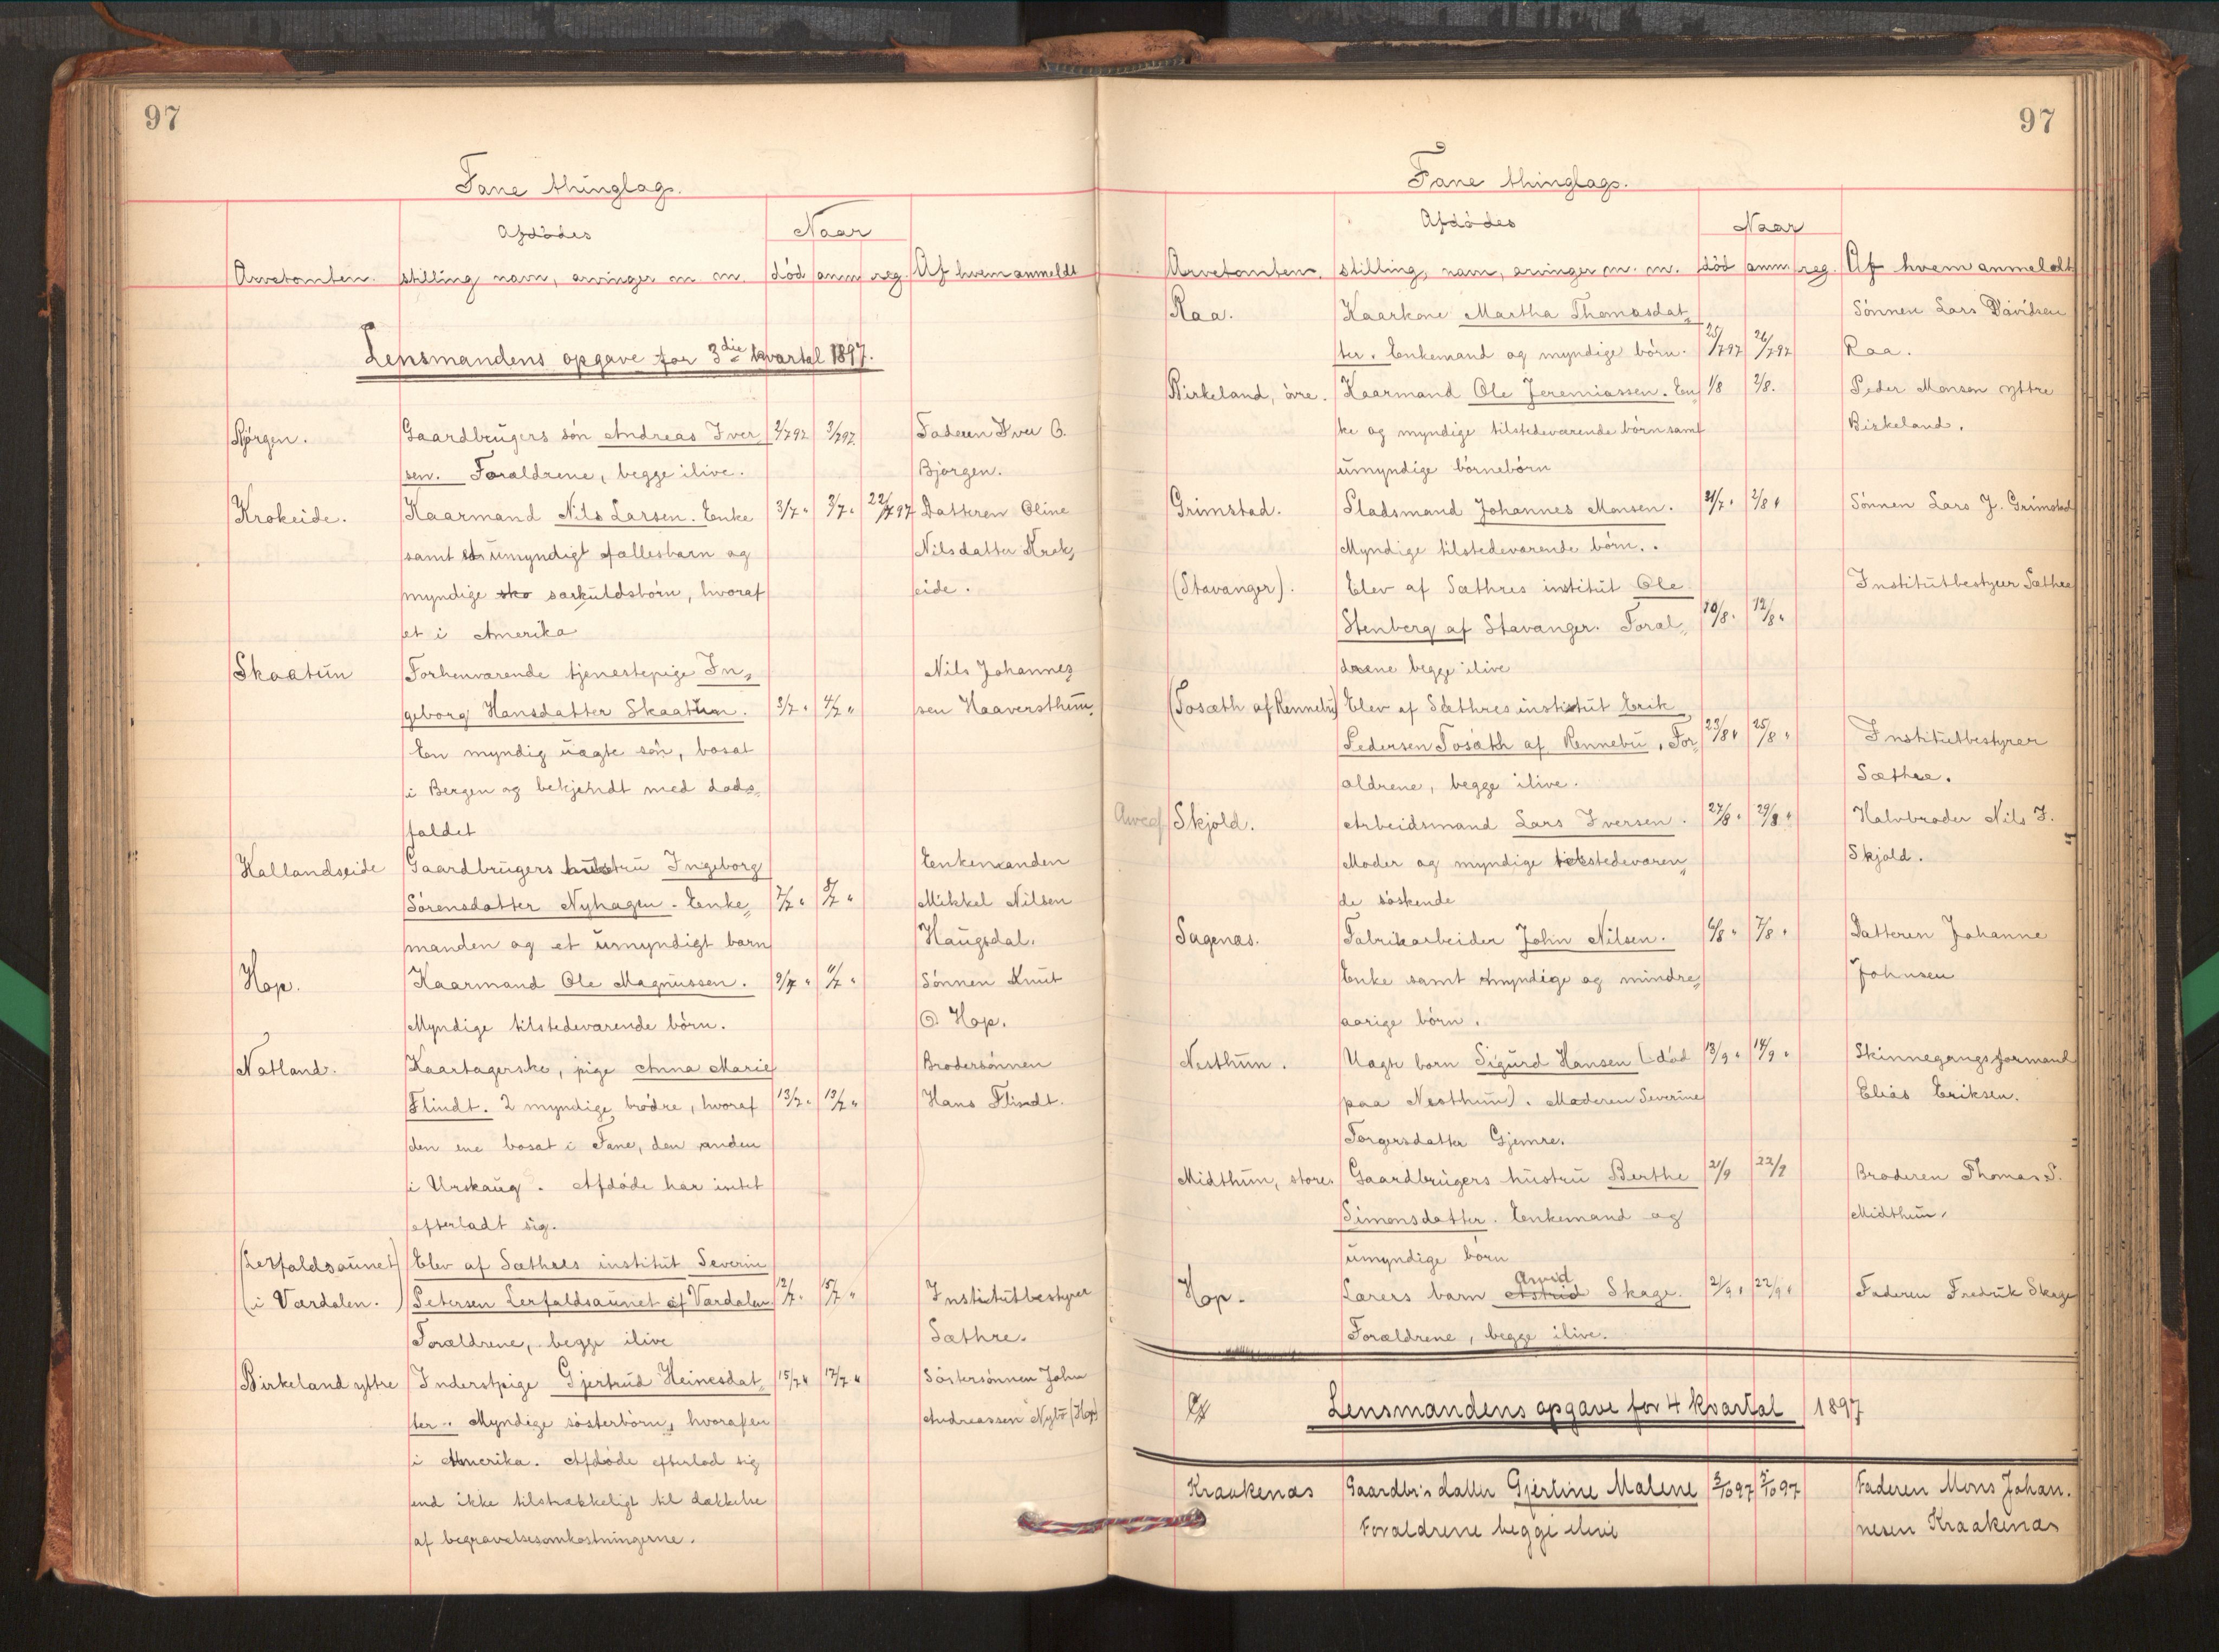 97
Fane thinglag.
Afdödes
Naar
Arvetomten. stilling navn, arvinger m m. död anm reg. Af hvem anmeldt
Lensmandens opgave for 3die kvartal 1897.
Björgen. Gaardbrugers sön Andreas Iver 2/797 3/797 Faderen Iver O.
sen. Forældrene, begge ilive. Bjørgen.
Krokeide. Kaarmand Nils Larsen. Enke 3/7 " 3/7 " 22/797 Datteren Oline
samt umyndigt fællesbarn og Nilsdatter Krok,
myndige særkuldsbörn, hvoraf eide.
et i Amerika
Skaatun Forhenværende tjenestepige In, Nils Johannes,
geborg Hansdatter Skaatun. 3/7 " 4/7 " sen Haaversthun,
En myndig uægte sön, bosat
i Bergen og bekjendt med döds,
faldet
Hallandseide Gaardbrugers hustru Ingeborg Enkemanden
Sörensdatter Nyhagen. Enke, 7/7 " 8/7 " Mikkel Nilsen
manden og et umyndigt barn Haugsdal.
Hop. Kaarmand Ole Magnussen. 9/7 " 11/7 " Sönnen Knut
Myndige tilstedeværende börn. O Hop.
Natland. Kaartagerske, pige Anna Marie Brodersönnen
Flindt. 2 myndige brödre, hvoraf 13/7 " 13/7 " Hans Flindt.
den ene bosat i Fane, den anden
i Urskaug. Afdöde har intet
efterladt sig.
(Lerfaldsaunet) Elev af Sæthres institut Severin
(i Værdalen.) Petersen Lerfaldsaunet af Værdalen 12/7 " 15/7 " Institutbestyrer
Forældrene, begge ilive Sæthre.
Birkeland yttre Inderstpige Gjertrud Heinesdat, 15/7 " 17/7 " Söstersönnen John
ter. Myndige sösterbörn, hvoraf en Andreassen Nytr (Hop)
i Amerika. Afdöde efterlod sig
end ikke tilstrækkeligt til dækkelse
af begravelsesomkostningerne.
97
Fane thinglag.
Afdödes
Naar
Arvetomten. stilling, navn, arvinger m. m. död anm. reg. Af hvem anmeldt
Raa. Kaarkone Martha Thomasdat, Sönnen Lars Davidsen
ter. Enkemand og myndige börn. 25/797 26/797 Raa.
Birkeland, övre. Kaarmand Ole Jeremiassen. En, 1/8 2/8. Peder Monsen yttre
ke og myndige tilstedeværende börn samt Birkeland.
umyndige börnebörn
Grimstad. Pladsmand Johannes Monsen. 31/7 " 2/8 " Sönnen Lars J. Grimstad
Myndige tilstedeværende börn.
(Stavanger). Elev af Sæthres institut Ole Institutbestyrer Sæthre
Stenberg af Stavanger. Foræl, 10/8 " 12/8 "
drene begge ilive
(Tosæth af Rennebu) Elev af Sæthres institut Erik
Pedersen Tosæth af Rennebu. For, 23/8 " 25/8 " Institutbestyrer
ældrene, begge ilive. Sæthre.
Skjold. Arbeidsmand Lars Iversen. 27/8 " 29/8 " Halvbroder Nils I.
Moder og myndige tilstedeværen, Skjold.
de söskende
Sagenæs. Fabrikarbeider John Nilsen. 6/8 " 7/8 " Datteren Johanne
Enke samt myndige og mindre, Johnsen
aarige börn.
Nesthun. Uægte barn Sigurd Hansen (död 13/9 " 14/9 " Skinnegangsformand
paa Nesthun). Moderen Severine Elias Eriksen.
Torgersdatter Gjemre.
Midthun, store. Gaardbrugers hustru Berthe 21/9 22/9 Broderen Thomas S.
Simonsdatter. Enkemand og Midthun.
umyndige börn
Arvid
Hop. Lærers barn Astrid Skage. 21/9 " 22/9 " Faderen Fredrik Skage
Forældrene, begge ilive.
Lensmandens opgave for 4 kvartal 1897
Kraakenæs Gaardbr's datter Gjertine Malene 2/1097 2/1097 Faderen Mons Johan.
Forældrene begge ilive nesen Kraakenæs